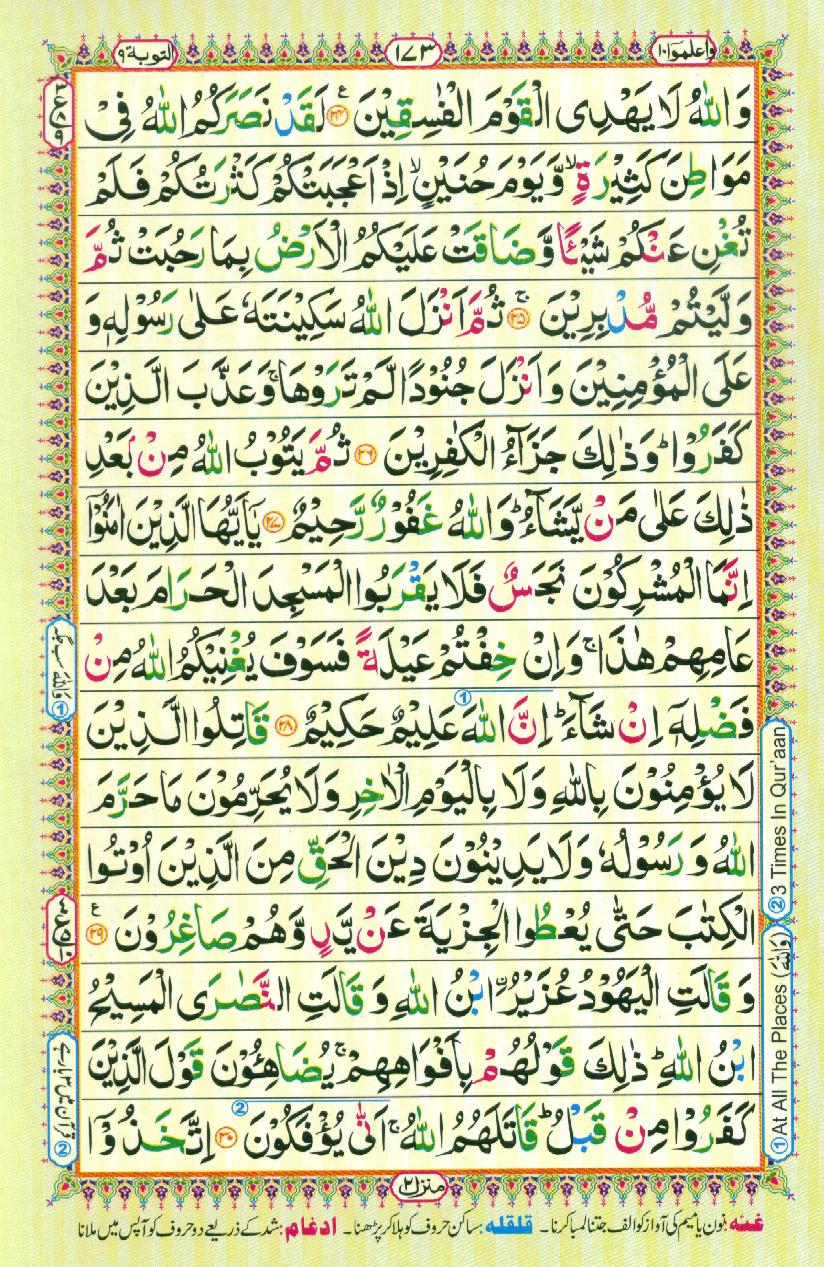 واعلموا ۱۰ ۱۷۳ التوبة ۹
وَاللّٰهُ لَا يَهْدِى الْقَوْمَ الْفٰسِقِيْنَ ﴿۲۴﴾ لَقَدْ نَصَرَكُمُ اللّٰهُ فِىْ
مَوَاطِنَ كَثِيْرَةٍ ۙ وَّيَوْمَ حُنَيْنٍ ۙ اِذْ اَعْجَبَتْكُمْ كَثْرَتُكُمْ فَلَمْ
تُغْنِ عَنْكُمْ شَيْـًٔا وَّضَاقَتْ عَلَيْكُمُ الْاَرْضُ بِمَا رَحُبَتْ ثُمَّ
وَلَّيْتُمْ مُّدْبِرِيْنَ ۚ﴿۲۵﴾ ثُمَّ اَنْزَلَ اللّٰهُ سَكِيْنَتَهٗ عَلٰى رَسُوْلِهٖ وَ
عَلَى الْمُؤْمِنِيْنَ وَاَنْزَلَ جُنُوْدًا لَّمْ تَرَوْهَا ۚ وَعَذَّبَ الَّذِيْنَ
كَفَرُوْا ؕ وَذٰلِكَ جَزَآءُ الْكٰفِرِيْنَ ﴿۲۶﴾ ثُمَّ يَتُوْبُ اللّٰهُ مِنْۢ بَعْدِ
ذٰلِكَ عَلٰى مَنْ يَّشَآءُ ؕ وَاللّٰهُ غَفُوْرٌ رَّحِيْمٌ ﴿۲۷﴾ يٰۤاَيُّهَا الَّذِيْنَ اٰمَنُوْۤا
اِنَّمَا الْمُشْرِكُوْنَ نَجَسٌ فَلَا يَقْرَبُوا الْمَسْجِدَ الْحَرَامَ بَعْدَ
عَامِهِمْ هٰذَا ۚ وَاِنْ خِفْتُمْ عَيْلَةً فَسَوْفَ يُغْنِيْكُمُ اللّٰهُ مِنْ
فَضْلِهٖۤ اِنْ شَآءَ ؕ اِنَّ اللّٰهَ عَلِيْمٌ حَكِيْمٌ ﴿۲۸﴾ قَاتِلُوا الَّذِيْنَ
لَا يُؤْمِنُوْنَ بِاللّٰهِ وَلَا بِالْيَوْمِ الْاٰخِرِ وَلَا يُحَرِّمُوْنَ مَا حَرَّمَ
اللّٰهُ وَ رَسُوْلُهٗ وَلَا يَدِيْنُوْنَ دِيْنَ الْحَقِّ مِنَ الَّذِيْنَ اُوْتُوا
الْكِتٰبَ حَتّٰى يُعْطُوا الْجِزْيَةَ عَنْ يَّدٍ وَّهُمْ صَاغِرُوْنَ ﴿۲۹﴾
وَ قَالَتِ الْيَهُوْدُ عُزَيْرُ ۨابْنُ اللّٰهِ وَ قَالَتِ النَّصٰرَى الْمَسِيْحُ
ابْنُ اللّٰهِ ؕ ذٰلِكَ قَوْلُهُمْ بِاَفْوَاهِهِمْ ۚ يُضَاهِـُٔوْنَ قَوْلَ الَّذِيْنَ
كَفَرُوْا مِنْ قَبْلُ ؕ قَاتَلَهُمُ اللّٰهُ ۚ اَنّٰى يُؤْفَكُوْنَ ﴿۳۰﴾ اِتَّخَذُوْۤا
① At All The Places (وَاللّٰهُ) ② 3 Times In Qur'aan
منزل ۲
غنّه: نون یا میم کی آواز کو الف جتنا لمبا کرنا۔ قلقله: ساکن حروف کو ہلا کر پڑھنا۔ ادغام: شد کے ذریعے دو حروف کو آپس میں ملانا